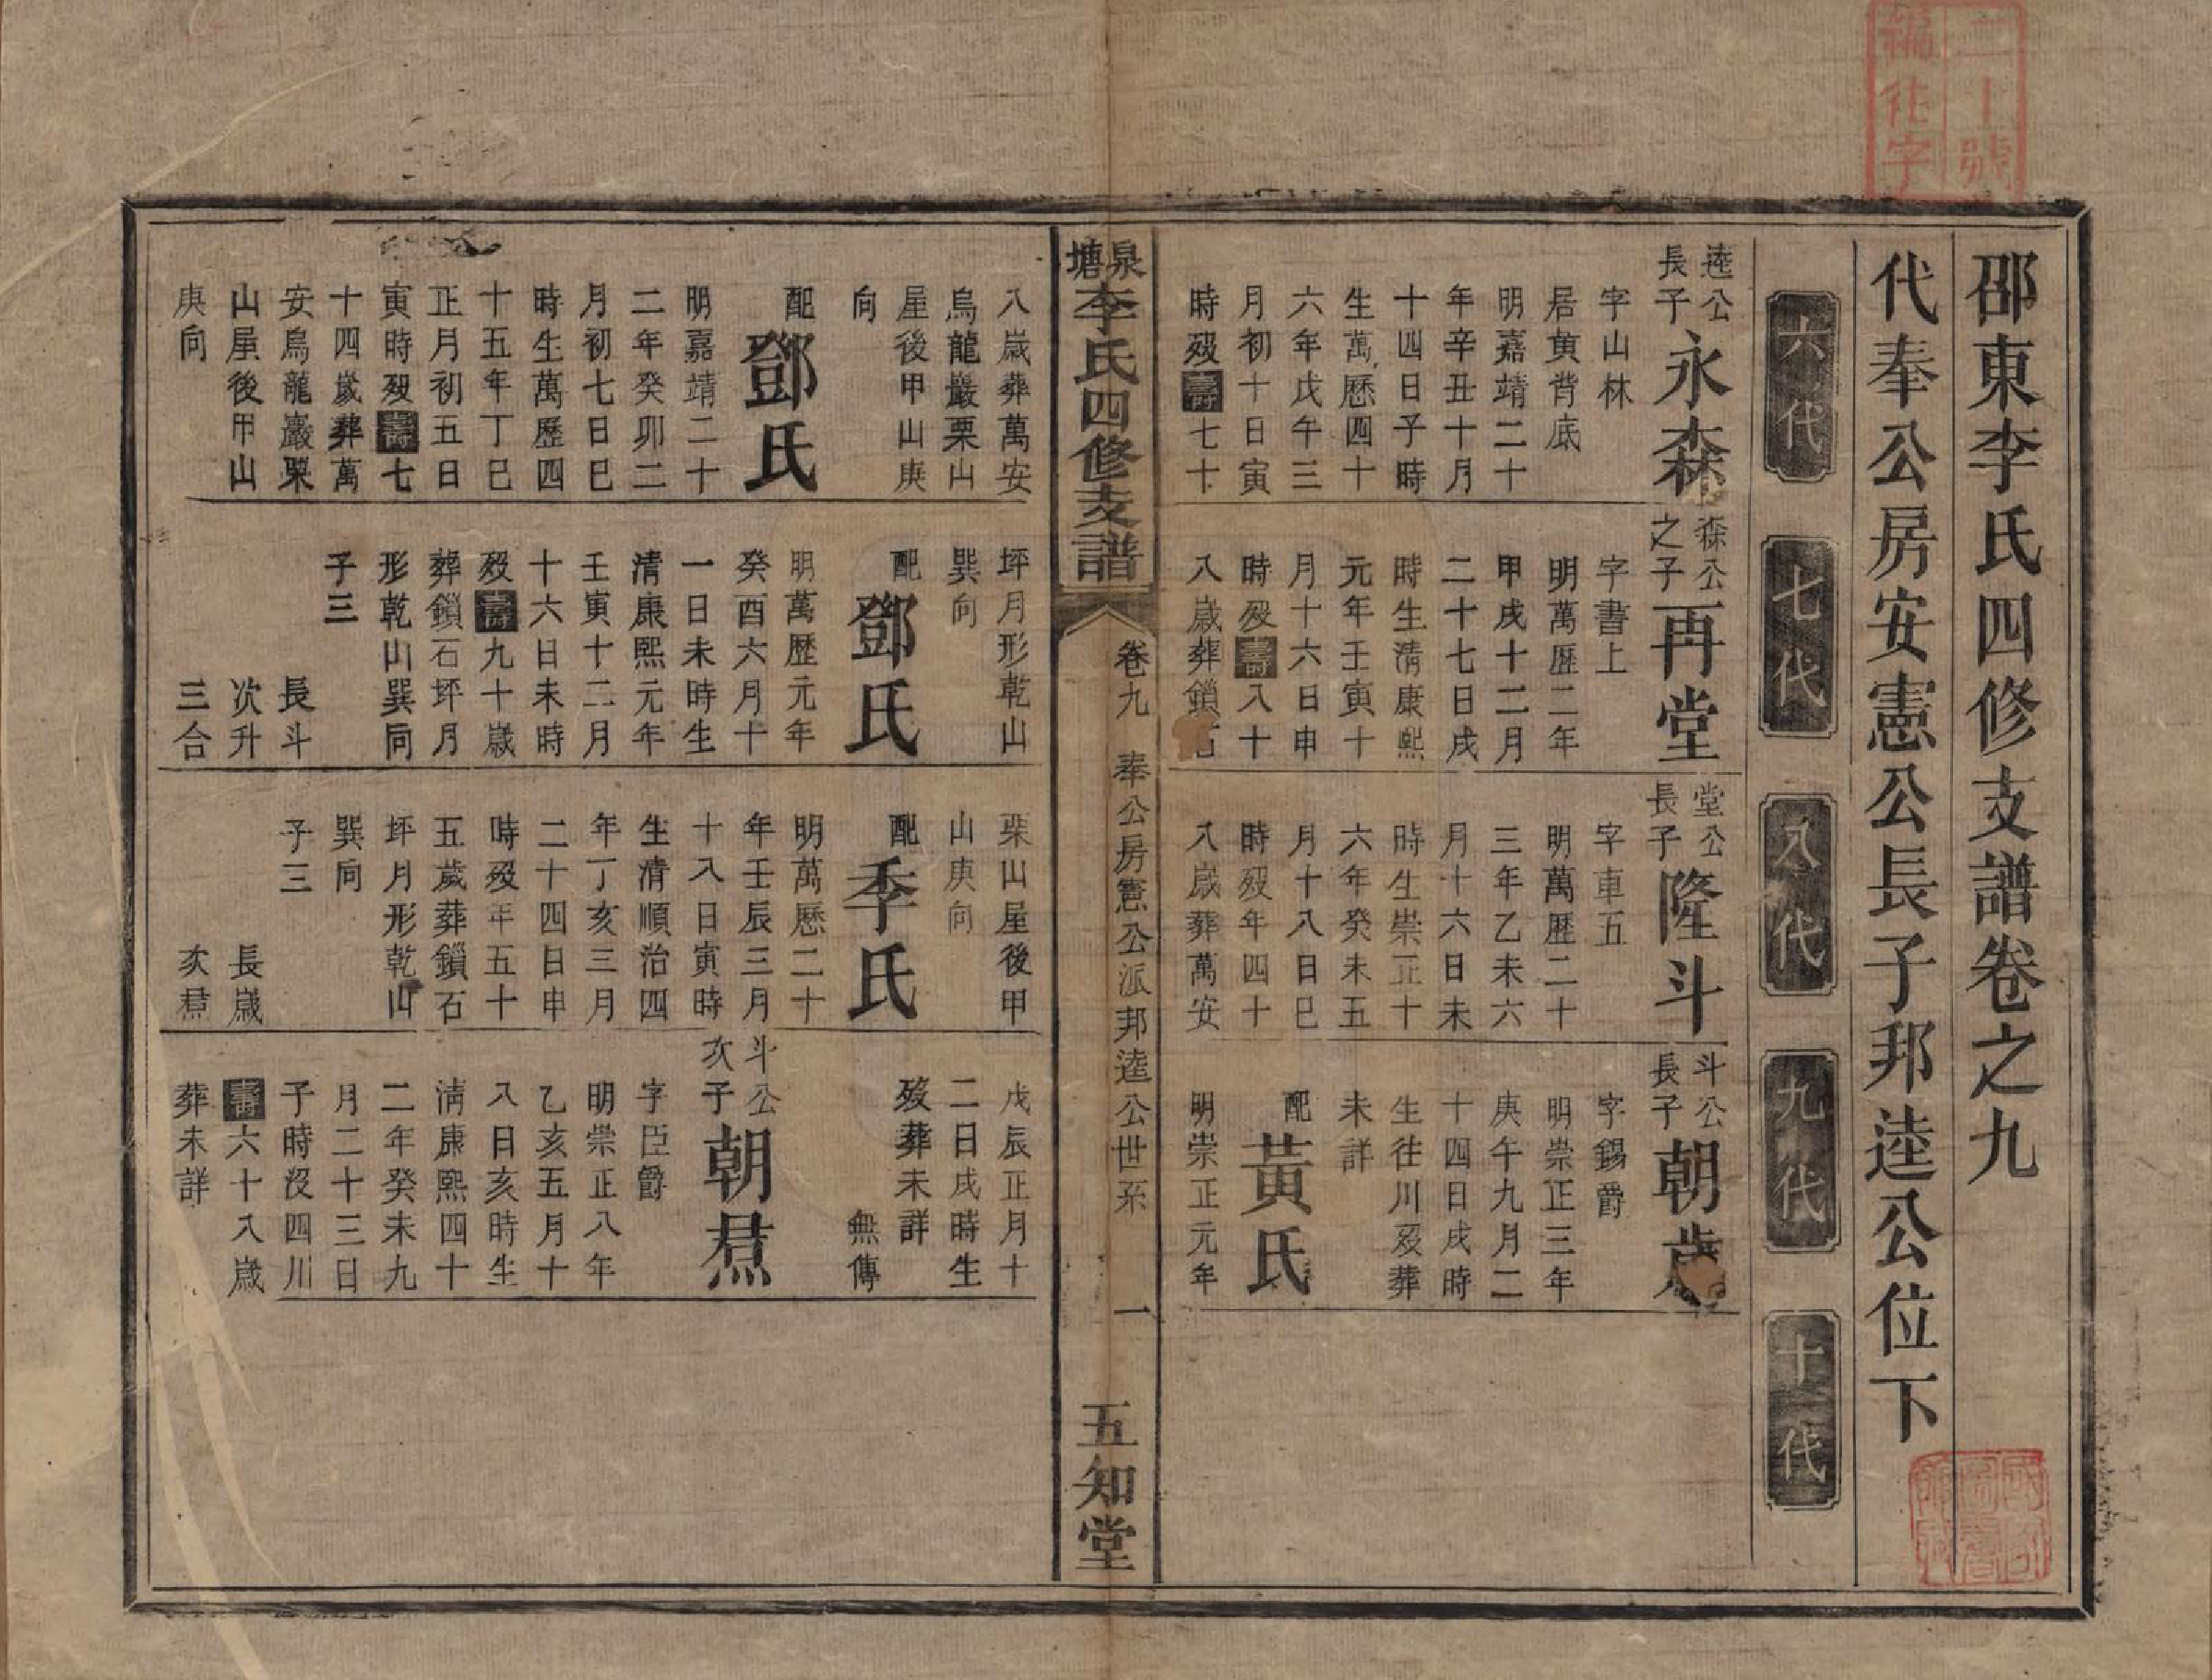 二十號
編仕字
邵東李氏四修支譜卷之九
代奉公房安憲公長子邦逵公位下
六代
七代
八代
九代
十代
逵公長子
永森
字山林
居黃背底
明嘉靖二十
年辛丑十月
十四日子時
生萬歷四十
六年戊午三
月初十日寅
時歿壽七十
八歲葬萬安
烏龍巖栗山
屋後甲山庚
向
配
鄧氏
明嘉靖二十
二年癸卯二
月初七日巳
時生萬歷四
十五年丁巳
正月初五日
寅時歿壽七
十四歲葬萬
安烏龍巖栗
山屋後甲山
庚向
森公之子
再堂
字書上
明萬歷二年
甲戌十二月
二十七日戌
時生清康熙
元年壬寅十
月十六日申
時歿壽八十
八歲葬鎖石
坪月形乾山
巽向
配
鄧氏
明萬歷元年
癸酉六月十
一日未時生
清康熙元年
壬寅十二月
十六日未時
歿壽九十歲
葬鎖石坪月
形乾山巽向
子三
長斗
次升
三合
堂公長子
隆斗
字車五
明萬歷二十
三年乙未六
月十六日未
時生崇正十
六年癸未五
月十八日巳
時歿年四十
八歲葬萬安
栗山屋後甲
山庚向
配
季氏
明萬歷二十
年壬辰三月
十八日寅時
生清順治四
年丁亥三月
二十四日申
時歿年五十
五歲葬鎖石
坪月形乾山
巽向
子三
長歲
次焄
斗公長子
朝歲
字錫爵
明崇正三年
庚午九月二
十四日戌時
生往川歿葬
未詳
配
黃氏
明崇正元年
戊辰正月十
二日戌時生
歿葬未詳
無傳
斗公次子
朝焄
字臣爵
明崇正八年
乙亥五月十
八日亥時生
清康熙四十
二年癸未九
月二十三日
子時沒四川
壽六十八歲
葬未詳
泉塘李氏四修支譜
卷九
奉公房憲公派邦逵公世系
一
五知堂